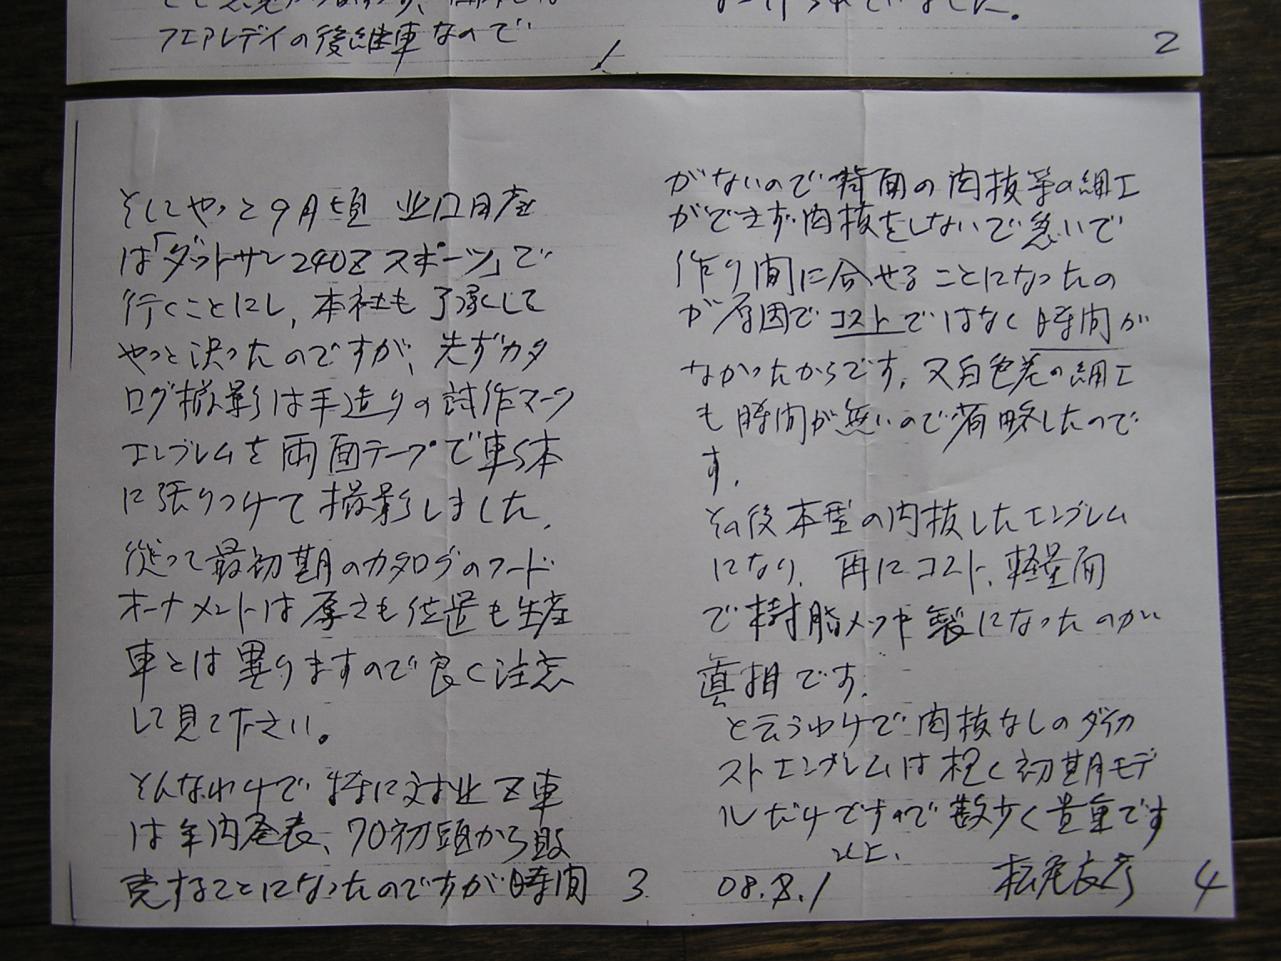 フェアレディの後継車なので
1
ていました。
2
そしてやっと9月頃 北口日産
は「ダットサン240Z スポーツ」で
行くことにし、本社も了承して
やっと決ったのですが、先ずカタ
ログ撮影は手造りの試作マーク
エンブレムを両面テープで車体
に張りつけて撮影しました、
従って最初期のカタログのフード
オーナメントは厚さも位置も生産
車とは異りますので良く注意
して見て下さい。
そんなわけで特に対北Z車
は年内発表、70初頭から販
売することになったのですが時間
3
がないので裏面の肉抜等の細工
ができず肉抜をしないで急いで
作り間に合せることになったの
が原因でコストではなく時間が
なかったからです、又白色差の細工
も時間が無いので省略したので
す、
その後本型の肉抜したエンブレム
になり、再にコスト、軽量面
で樹脂メッキ製になったのが
真相です、
と云うわけで肉抜なしのダイカ
ストエンブレムは極く初期モデ
ルだけですので数少く貴重です
以上、
08.8.1
松尾良彦
4